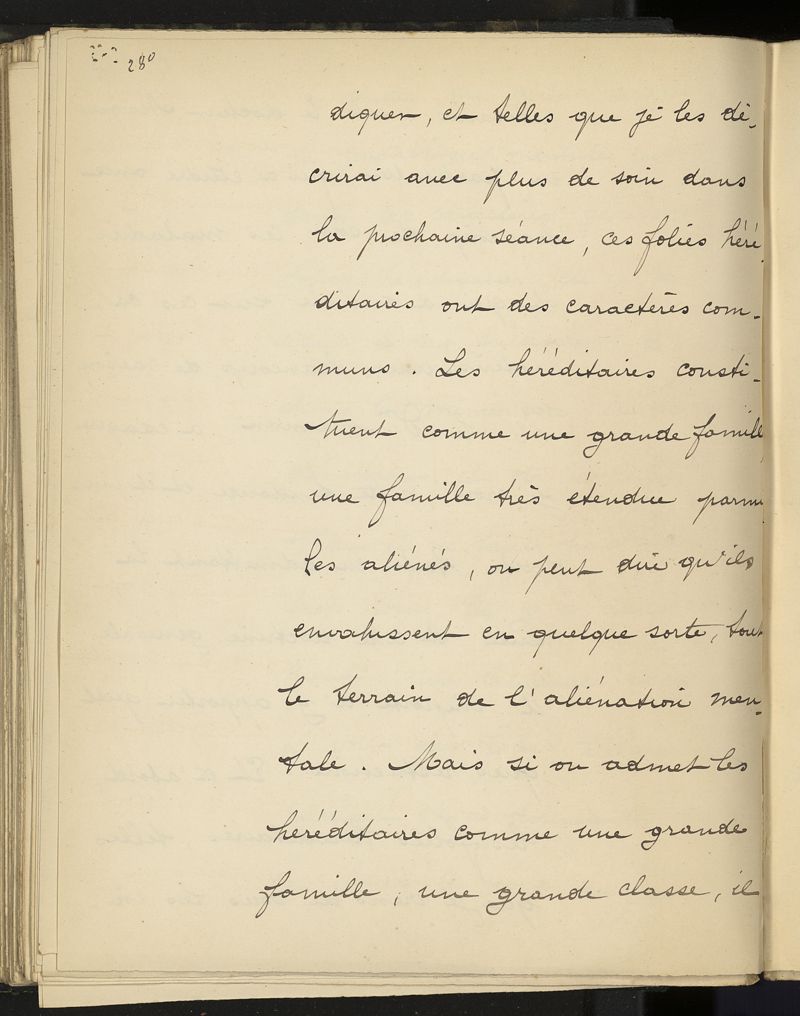 280
diquer, et telles que je les dé-
crirai avec plus de soin dans
la prochaine séance, ces folies héré
ditaires ont des caractères com-
muns. Les héréditaires consti-
tuent comme une grande famille
une famille très étendue parmi
les aliénés, on peut dire qu'ils
envahissent en quelque sorte, tout
le terrain de l'aliénation men-
tale. Mais si on admet les
héréditaires comme une grande
famille, une grande classe, il